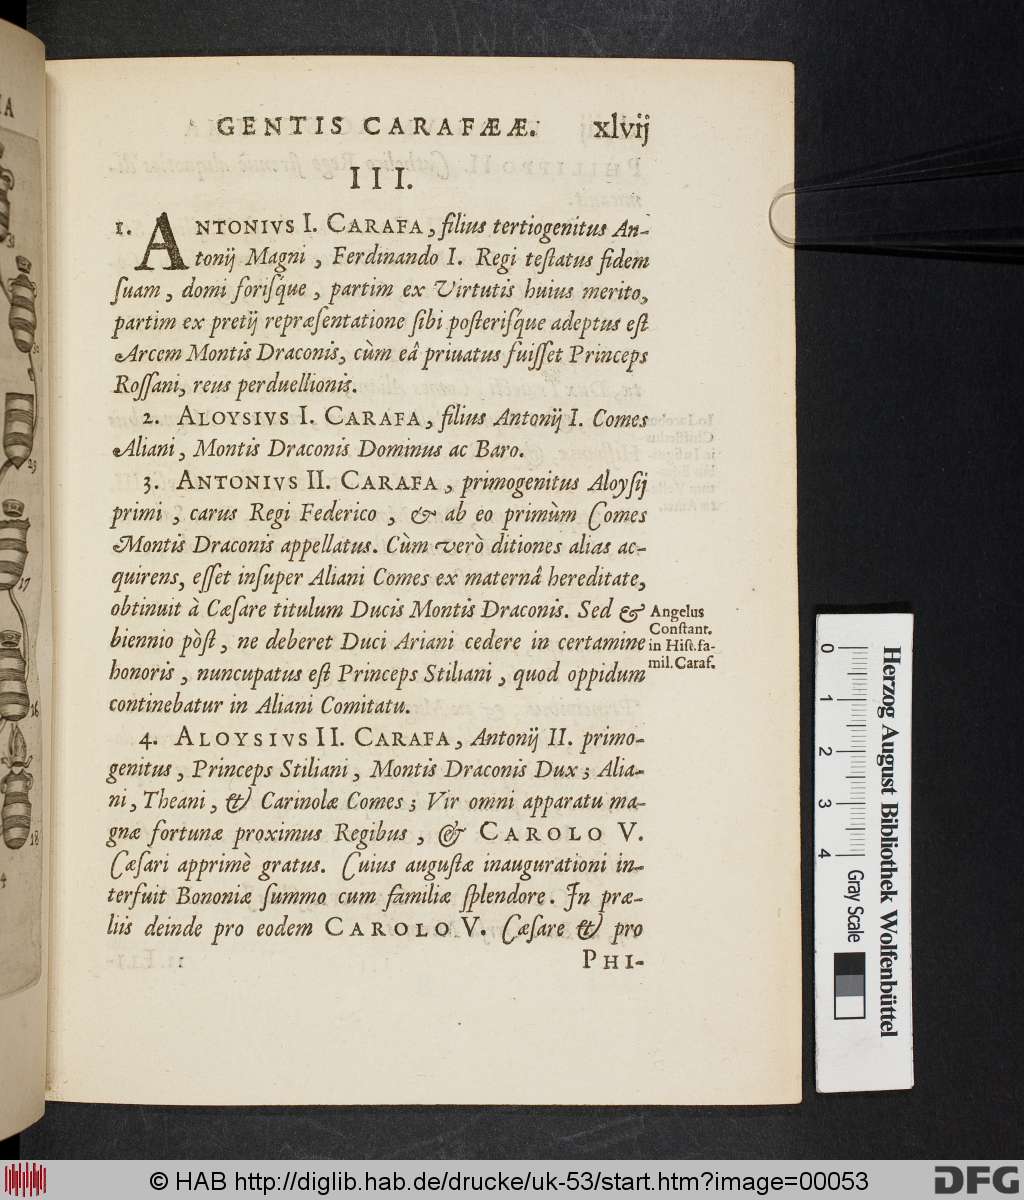 GENTIS CARAFÆÆ. xlvij
III.
1. ANTONIVS I. CARAFA, filius tertiogenitus An-
tonij Magni, Ferdinando I. Regi teſtatus fidem
ſuam, domi foriſq́ue, partim ex Virtutis huius merito,
partim ex pretij repræſentatione ſibi poſteriſq́ue adeptus eſt
Arcem Montis Draconis, cùm eâ priuatus fuiſſet Princeps
Roſſani, reus perduellionis.
2. ALOYSIVS I. CARAFA, filius Antonij I. Comes
Aliani, Montis Draconis Dominus ac Baro.
3. ANTONIVS II. CARAFA, primogenitus Aloyſij
primi, carus Regi Federico, & ab eo primùm Comes
Montis Draconis appellatus. Cùm verò ditiones alias ac-
quirens, eſſet inſuper Aliani Comes ex maternâ hereditate,
obtinuit à Cæſare titulum Ducis Montis Draconis. Sed &
biennio pòſt, ne deberet Duci Ariani cedere in certamine
honoris, nuncupatus eſt Princeps Stiliani, quod oppidum
continebatur in Aliani Comitatu.
Angelus
Conſtant.
in Hiſt.fa-
mil.Caraf.
4. ALOYSIVS II. CARAFA, Antonij II. primo-
genitus, Princeps Stiliani, Montis Draconis Dux; Alia-
ni, Theani, & Carinolæ Comes; Vir omni apparatu ma-
gnæ fortunæ proximus Regibus, & CAROLO V.
Cæſari apprimè gratus. Cuius auguſtæ inaugurationi in-
terfuit Bononiæ ſummo cum familiæ ſplendore. In præ-
liis deinde pro eodem CAROLO V. Cæſare & pro
PHI-
3
17
16
18
23
0 1 2 3 4
Gray Scale
Herzog August Bibliothek Wolfenbüttel
© HAB http://diglib.hab.de/drucke/uk-53/start.htm?image=00053
DFG